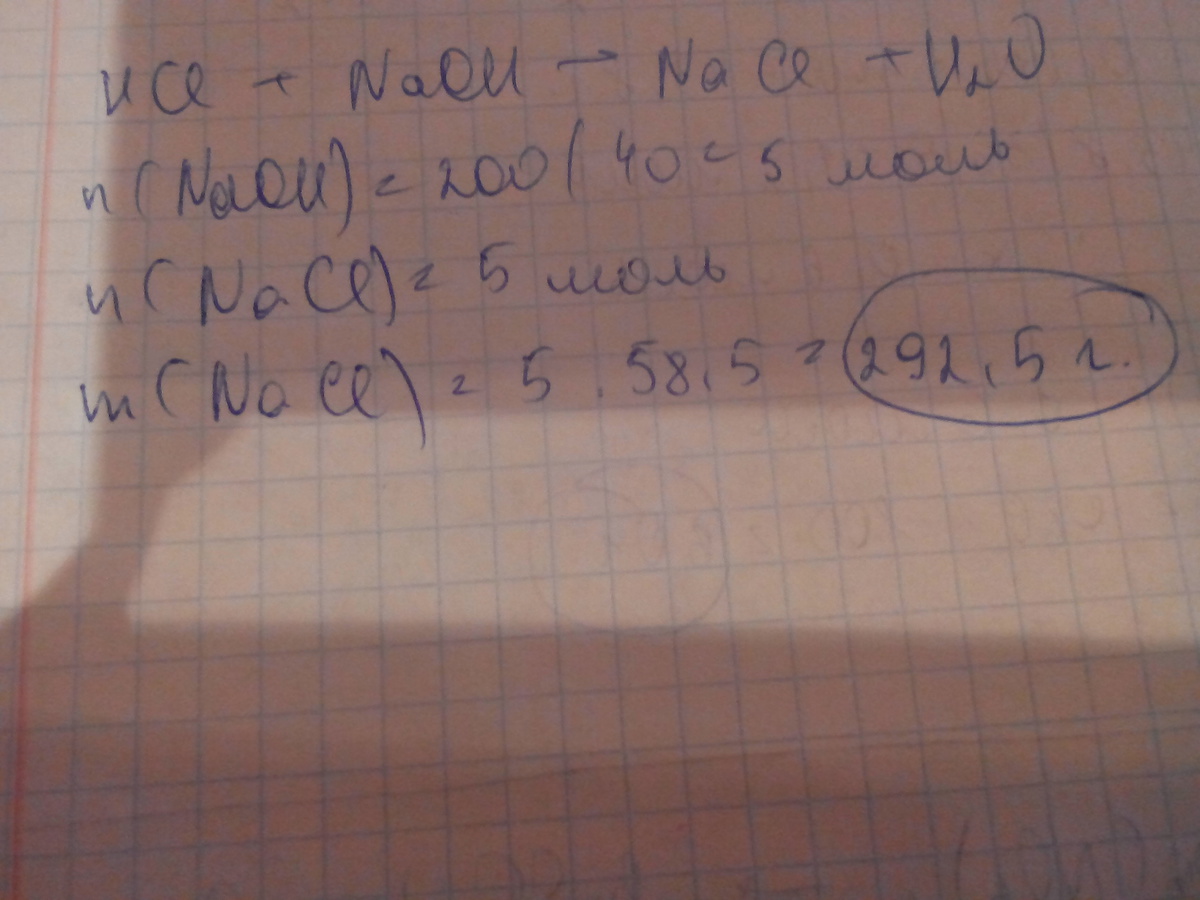 HCl + NaOH → NaCl + H₂O
n(NaOH) = 200 / 40 = 5 моль
n(NaCl) = 5 моль
m(NaCl) = 5 . 58,5 = 292,5 г.